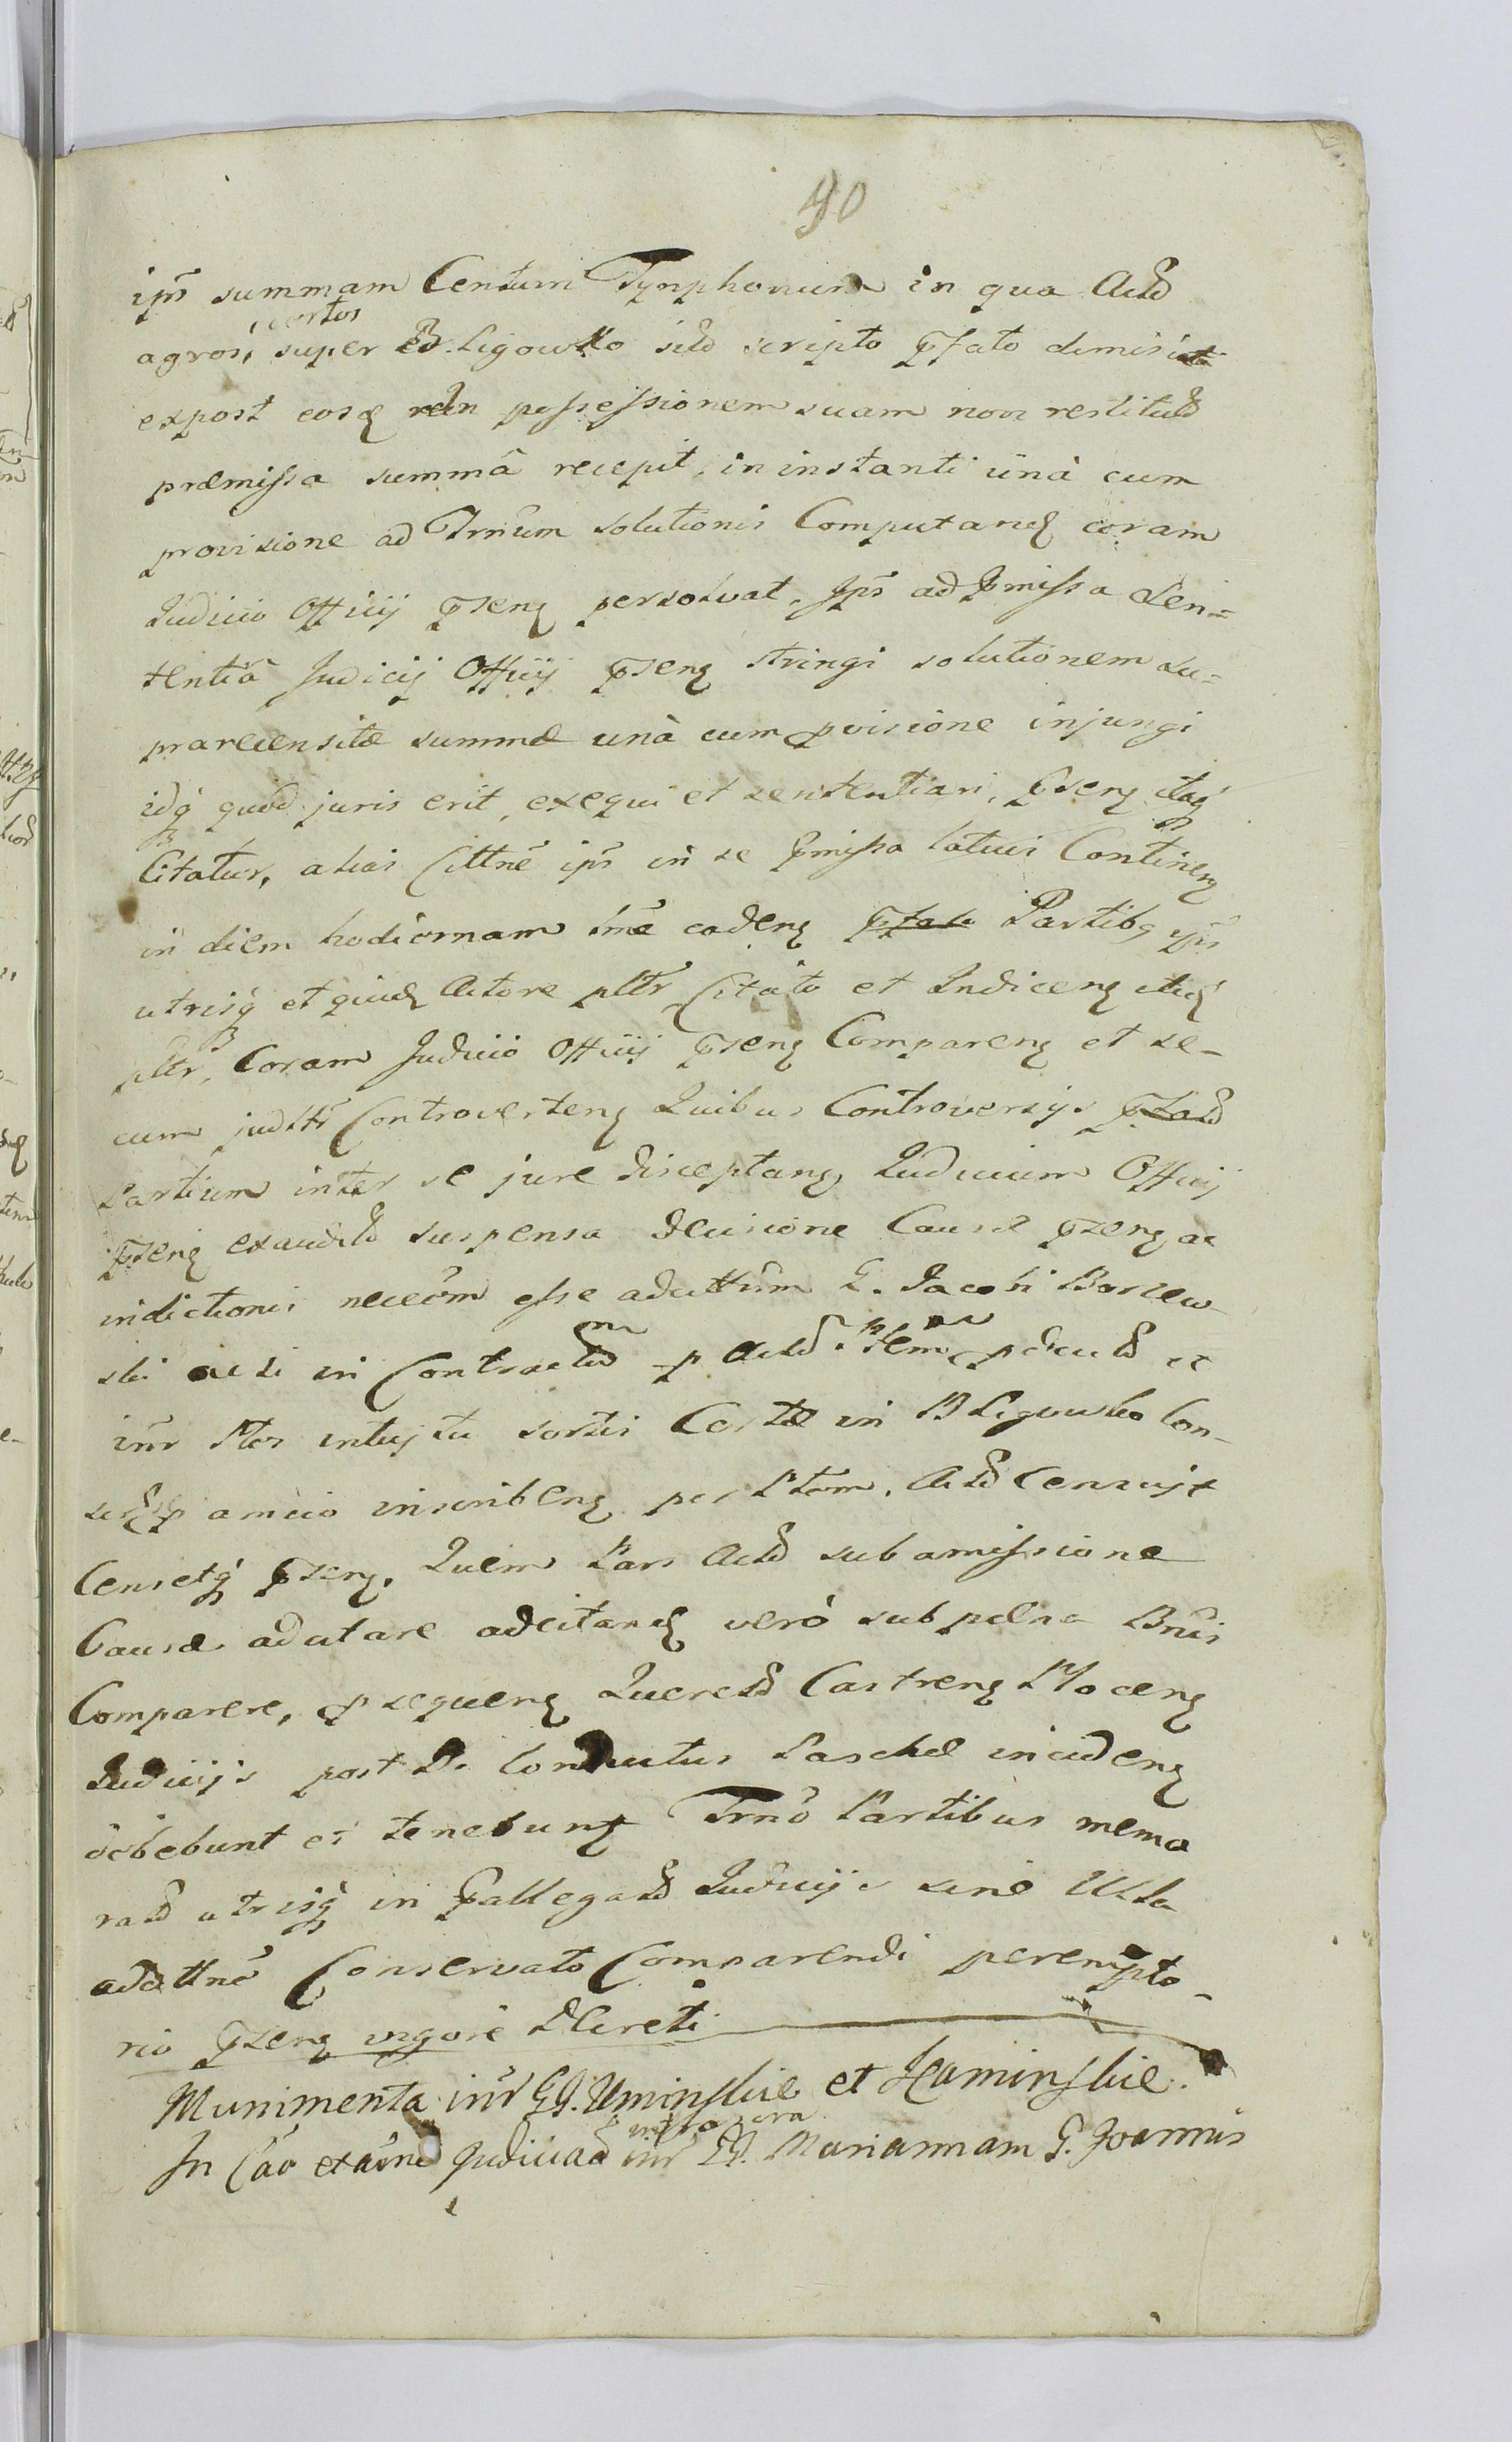 90
ips summam Centum Tynphonum in qua Actd
certos
agros, super B. Ligowko scto scripto pfato dimisit
expost eosq in possessionem suam non restituto
præmissa summâ recepit, in instanti unà cum
provisione ad Trnum solutionis Computand coram
Judicio Officij psenz persolvat. Ips ad pmissa Sen=
tentiâ Judicij Officij psenz stringi solutionem su=
prarecensitæ summæ unà cum pvisione injungi
idq quod juris erit, exequi et sententiari, psenz itaq
Citatur, alias Cittne ips in se pmissa latius Continenz
in diem hodiernam lme cadenz Partibq ips
utrisq et quid Actore pltr Citato et Indicenz
pltr, Coram Judicio Officij psenz Comparenz et se-
cum judltr Controvertenz Quibus Controversijs
Partium inter se jure disceptanz, Judicium Officij
psenz exaudito suspensa decisione Causæ psenz ac
indictionis necem esse adcittum G. Jacobi Borzew
ski ac si in Contractu p Actd ptem
inr Ptes intujtu sortis Certæ in B Ligowko Con-
amico inscribenz per Ptem. Actd Censujt
Censetq psenz, Quem Pars Actd sub amissione
Causæ adcitare adcitand verò sub pæna Bnis
Comparere, p sequenz Querelis Castrenz Plocenz
Judicijs post D. Conductus Paschæ incidenz
debebunt et tenebunt Trno Partibus memo
ratd utrisq in pallegatd Judicijs sine Ulla
adcittne Conservato Comparendi perempto-
rio psenz vigore Dcreti
Munimenta inr GG. Uminskie et Kaminskie.
In Cao exaone Judiciad inr GG. Mariannam G. Joannis